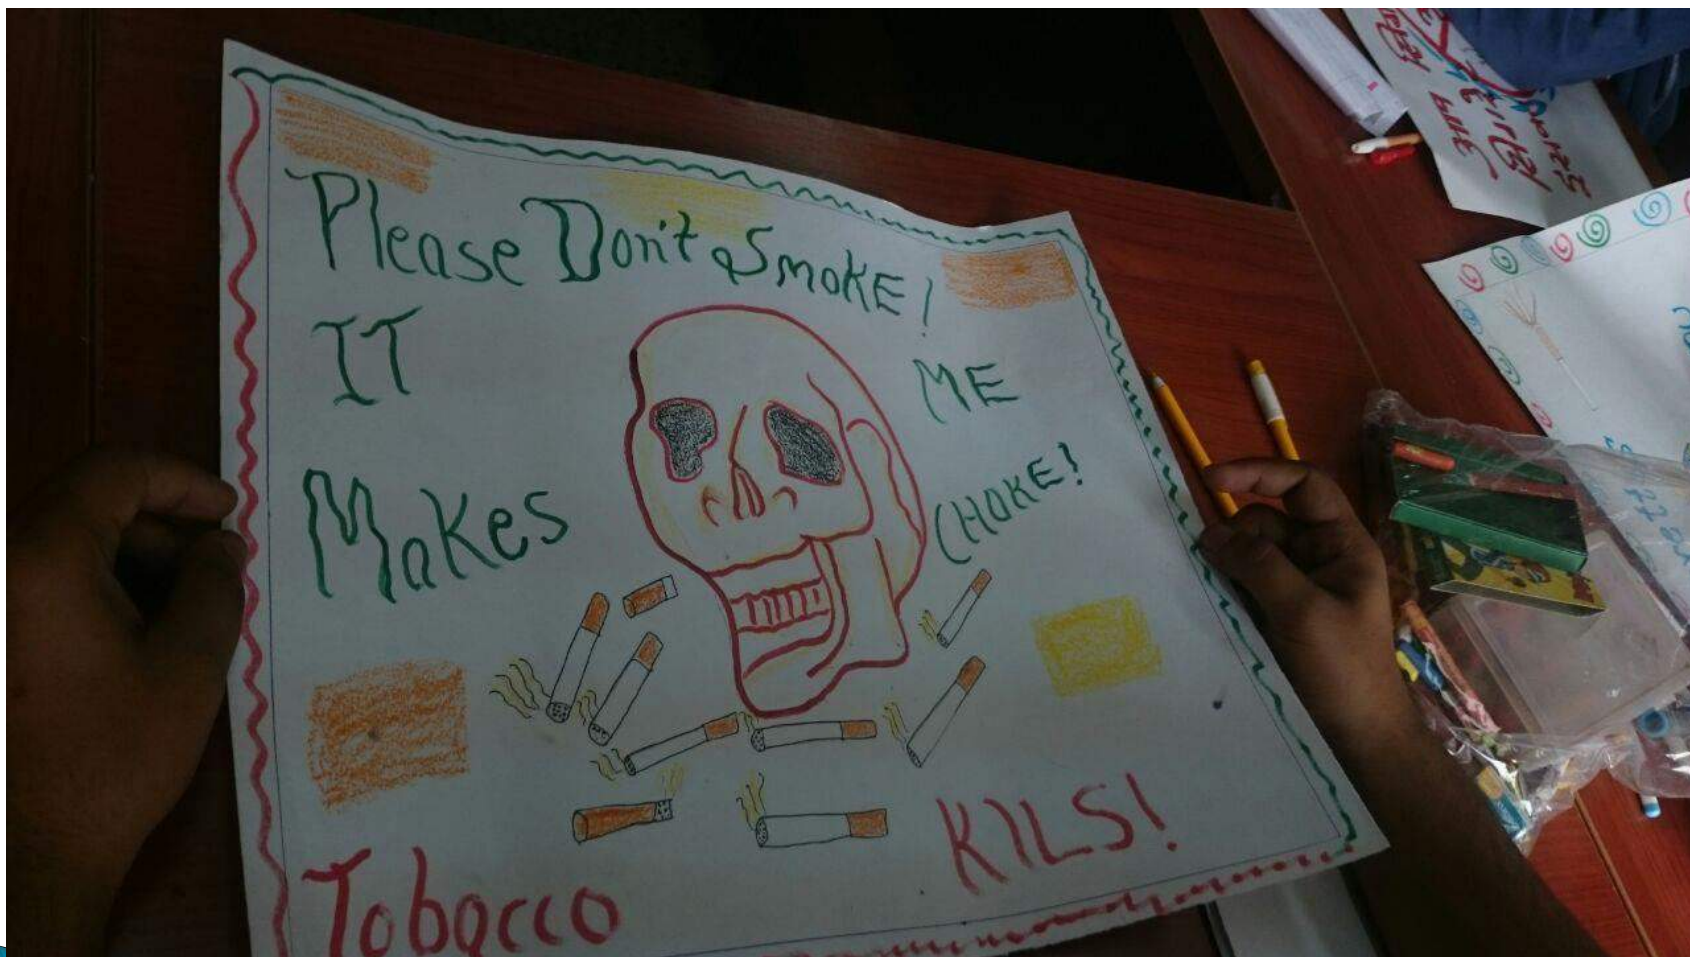 Please Don't Smoke!
IT
ME
Makes
CHOKE!
Tobacco
KILS!